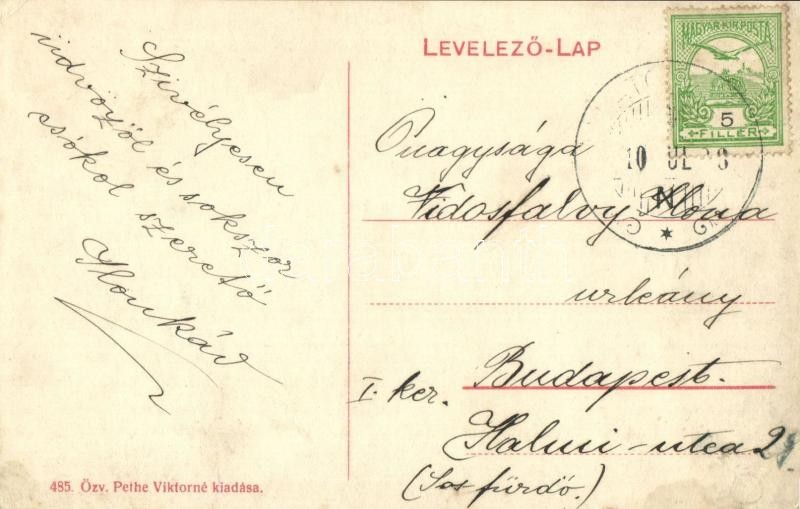 Szivélyesen
üdvözöl és sokszor
csókol szerető
Ilonkád
485. Özv. Pethe Viktorné kiadása.
LEVELEZŐ-LAP
MAGYAR·KIR·POSTA
5
FILLÉR
10
N
Őnagysága
Vidosfalvy Ilona
urleány
I. ker. Budapest.
utca 2
(Sós fürdő.)